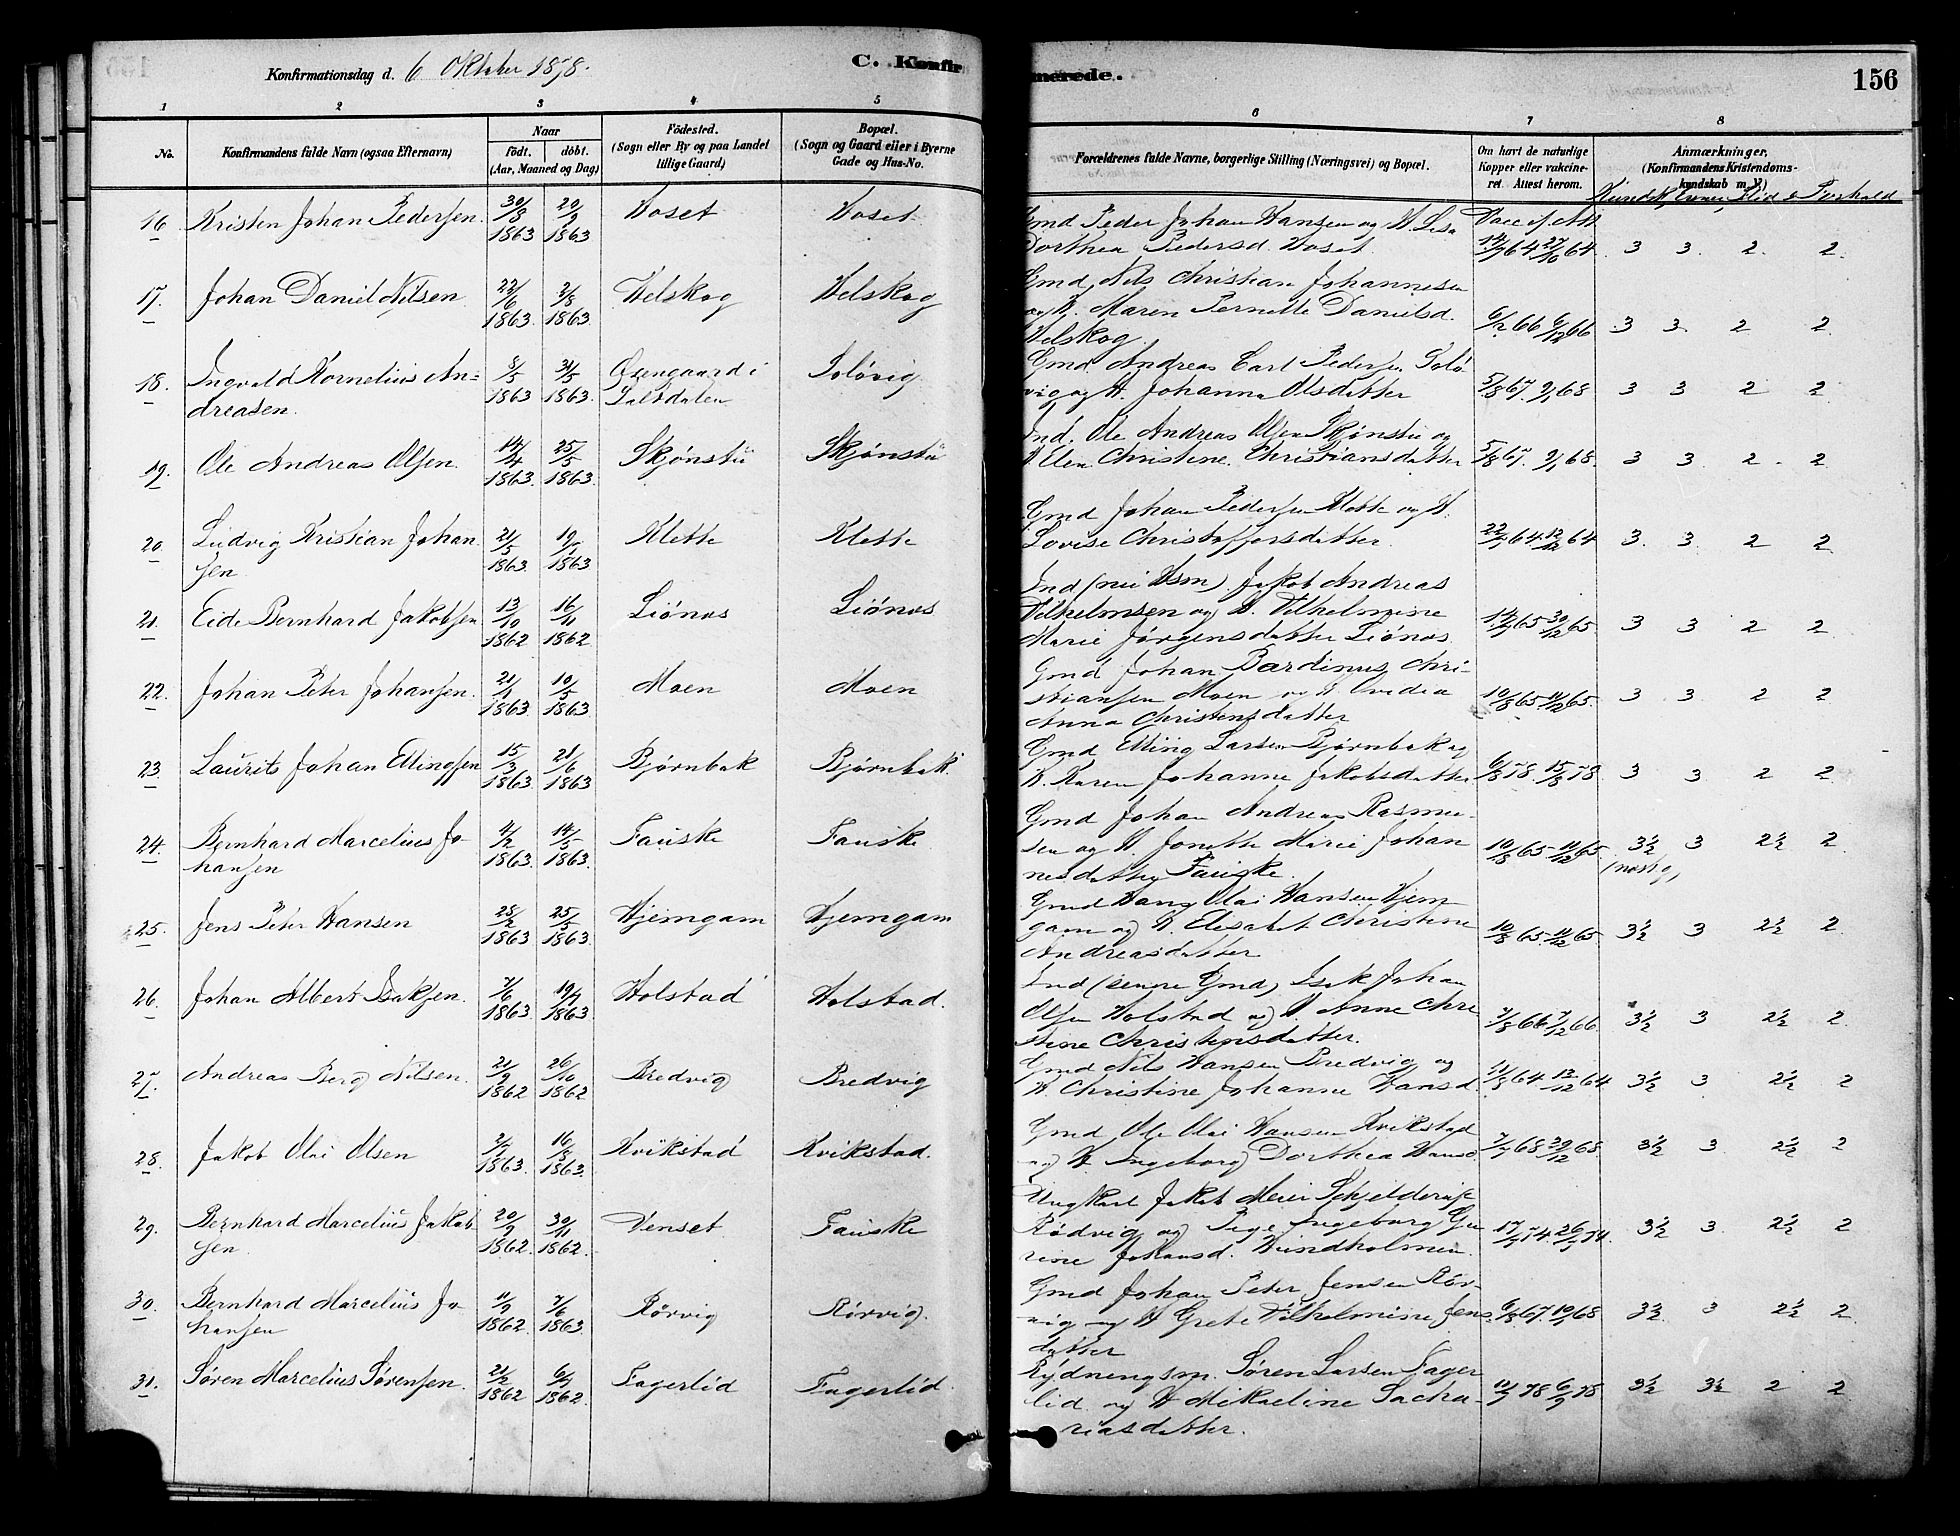 Konfirmationsdag d. 6 Oktober 1878.
C. Konfirmerede.
156
1 2 3 4 5 6 7 8
No.
Konfirmandens fulde Navn (ogsaa Efternavn)
Naar
födt. döbt.
(Aar, Maaned og Dag)
Födested.
(Sogn eller By og paa Landet
tillige Gaard)
Bopæl.
(Sogn og Gaard eller i Byerne
Gade og Hus-No.
Forældrenes fulde Navne, borgerlige Stilling (Næringsvei) og Bopæl.
Om havt de naturlige
Kopper eller vakcine-
ret. Attest herom.
Anmærkninger,
(Konfirmandens Kristendoms-
kundskab m. V.)
Kundsk, Evner, Flid & Forhold
16 Kristen Johan Pedersen. 30/8 1863 20/9 1863 Hoset Hoset Gmd Peder Johan Hansen og H. Lisa
Dorthea Pedersd. Hoset. Vacc if Att 14/9 64 27/10 64. 3 3. 2. 2.
17. Johan Daniel Nilsen 22/6 1863. 2/8 1863. Helskog Helskog Gmd Nils Christian Johannesen
og H. Maren Pernelle Danielsd.
Helskog. 6/12 66 6/12 66 3 3. 2 2.
18. Ingvald Kornelius An-
dreasen. 8/5 1863 31/5 1863. Øxengaard i
Saltdalen Soløvig Gmd Andreas Carl Pedersen Solø
vig og H. Johanna Olsdatter 5/8 67. 2/1 68 3 3 2 2
19. Ole Andreas Olsen. 14/4 1863. 25/5 1863. Skjønstu Skjønstu Ind. Ole Andreas Olsen Skjønstu og
H Elen Christine Christiansdatter 5/8 67. 2/1 68. 3 3. 2. 2
20 Ludvig Kristian Johan
sen 21/5 1863. 19/7 1863 Klette Klette Gmd Johan Pedersen Klette og H.
Lovise Christoffersdatter. 22/7 64 12/12 64 3. 3. 2 2
21. Eide Bernhard Jakobsen 13/10 1862 16/11 1862 Liönes Liönes Ind (nu Hsm). Jakob Andreas
Vilhelmsen og H. Vilhelmine
Marie Jørgensdatter Liönes. 14/9 65 30/12 65. 3 3 2 2
22. Johan Peter Johansen. 21/1 1863. 10/5 1863. Moen Moen Gmd Johan Bardinus Chri-
stiansen Moen og H Ovidia
Anna Christensdatter 10/8 65 11/12 65. 3 3 2 2
23. Laurits Johan Ellingsen 15/3 1863 21/6 1863 Bjørnbak Bjørnbak Gmd Elling Larsen Bjørnbak og
H. Karen Johanne Jakobsdatter 6/8 78. 15/8 78 3 3 2 2
24. Bernhard Marcelius Jo-
hansen 4/2 1863. 14/5 1863. Fauske Fauske Gmd Johan Andreas Rasmu-
sen og H Jonette Marie Johan
nesdatter Fauske. 10/8 65 11/12 65. 3½ 3 2½ 2
25. Jens Peter Hansen 28/2 1863 25/5 1863. Hjemgam Hjemgam Gmd Hans Olai Hansen Hjem
gam og H. Elisabet Christine
Andreasdatter 10/8 65 11/12 65 3½ 3 2½ 2
26. Johan Albert Isaksen. 7/6 1863. 19/7 1863 Holstad Holstad. Ind (senere Gmd) Isak Johan
Olsen Holstad og H Anne Chri
stine Christensdatter. 7/8 66 7/12 66. 3½ 3 2½ 2
27. Andreas Berg Nilsen. 21/9 1862 26/10 1862. Bredvig Bredvig Gmd Nils Hansen Bredvig og
H. Christine Johanne Hansd. 11/7 64 12/12 64 3½ 3 2½ 2
28. Jakob Olai Olsen 2/7 1863. 16/8 1863. Kvikstad Kvikstad. Gmd Ole Olai Hansen Kvikstad
og H Ingeborg Dorthea Hansd. 7/7 68 30/12 68. 3½ 3 2½ 2
29. Bernhard Marcelius Jakob
sen. 20/9 1862. 30/11 1862. Venset Fauske Ungkarl Jakob Meier Schjelderup
Rödvig og Pige Ingeborg Gu
rine Johansd. Hundholmen. 17/7 74. 26/7 74. 3½ 3. 2½ 2
30. Bernhard Marcelius Jo-
hansen 11/9 1862. 7/6 1863. Rörvig Rörvig. Gmd Johan Peter Jensen Rör-
vig og H Grete Vilhelmine Jens
datter 6/8 67. 10/1 68 3½ 3 2½ 2
31. Søren Marcelius Sørensen. 21/2 1862 6/7 1862. Fagerlid Fagerlid. Rydningsm. Søren Larsen Fager
lid og H Mikaeline Sacha-
riasdatter. 11/7 78 6/9 78 3½ 3½ 2 2